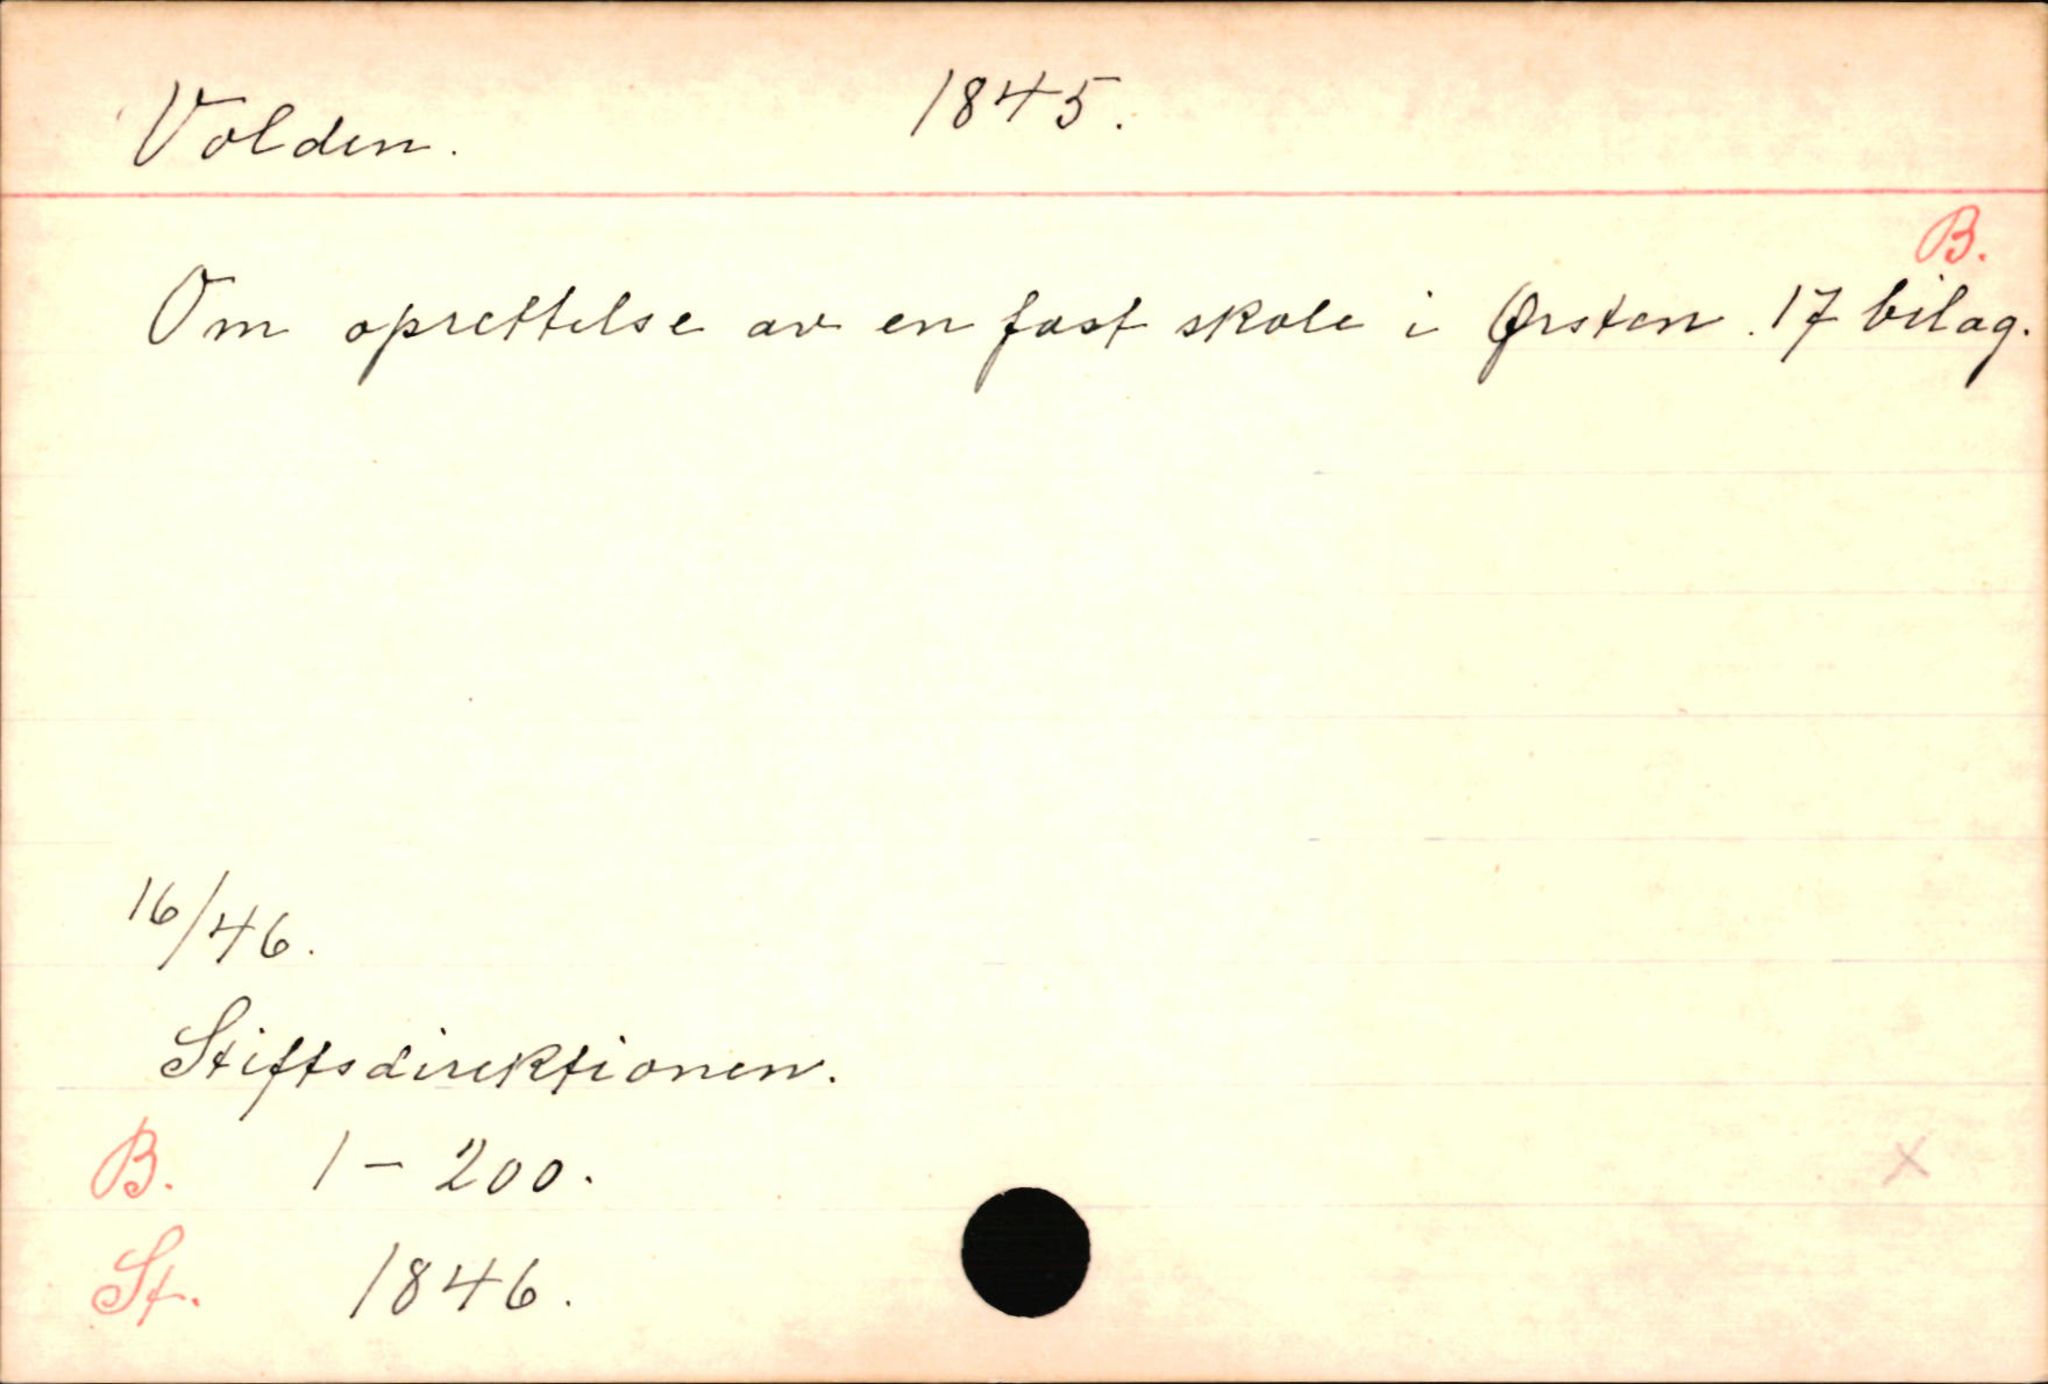 Volden. 1845.
B.
Om oprettelse av en fast skole i Ørsten. 17 bilag.
16/46.
Stiftsdirektionen.
B. 1-200.
X
St. 1846.